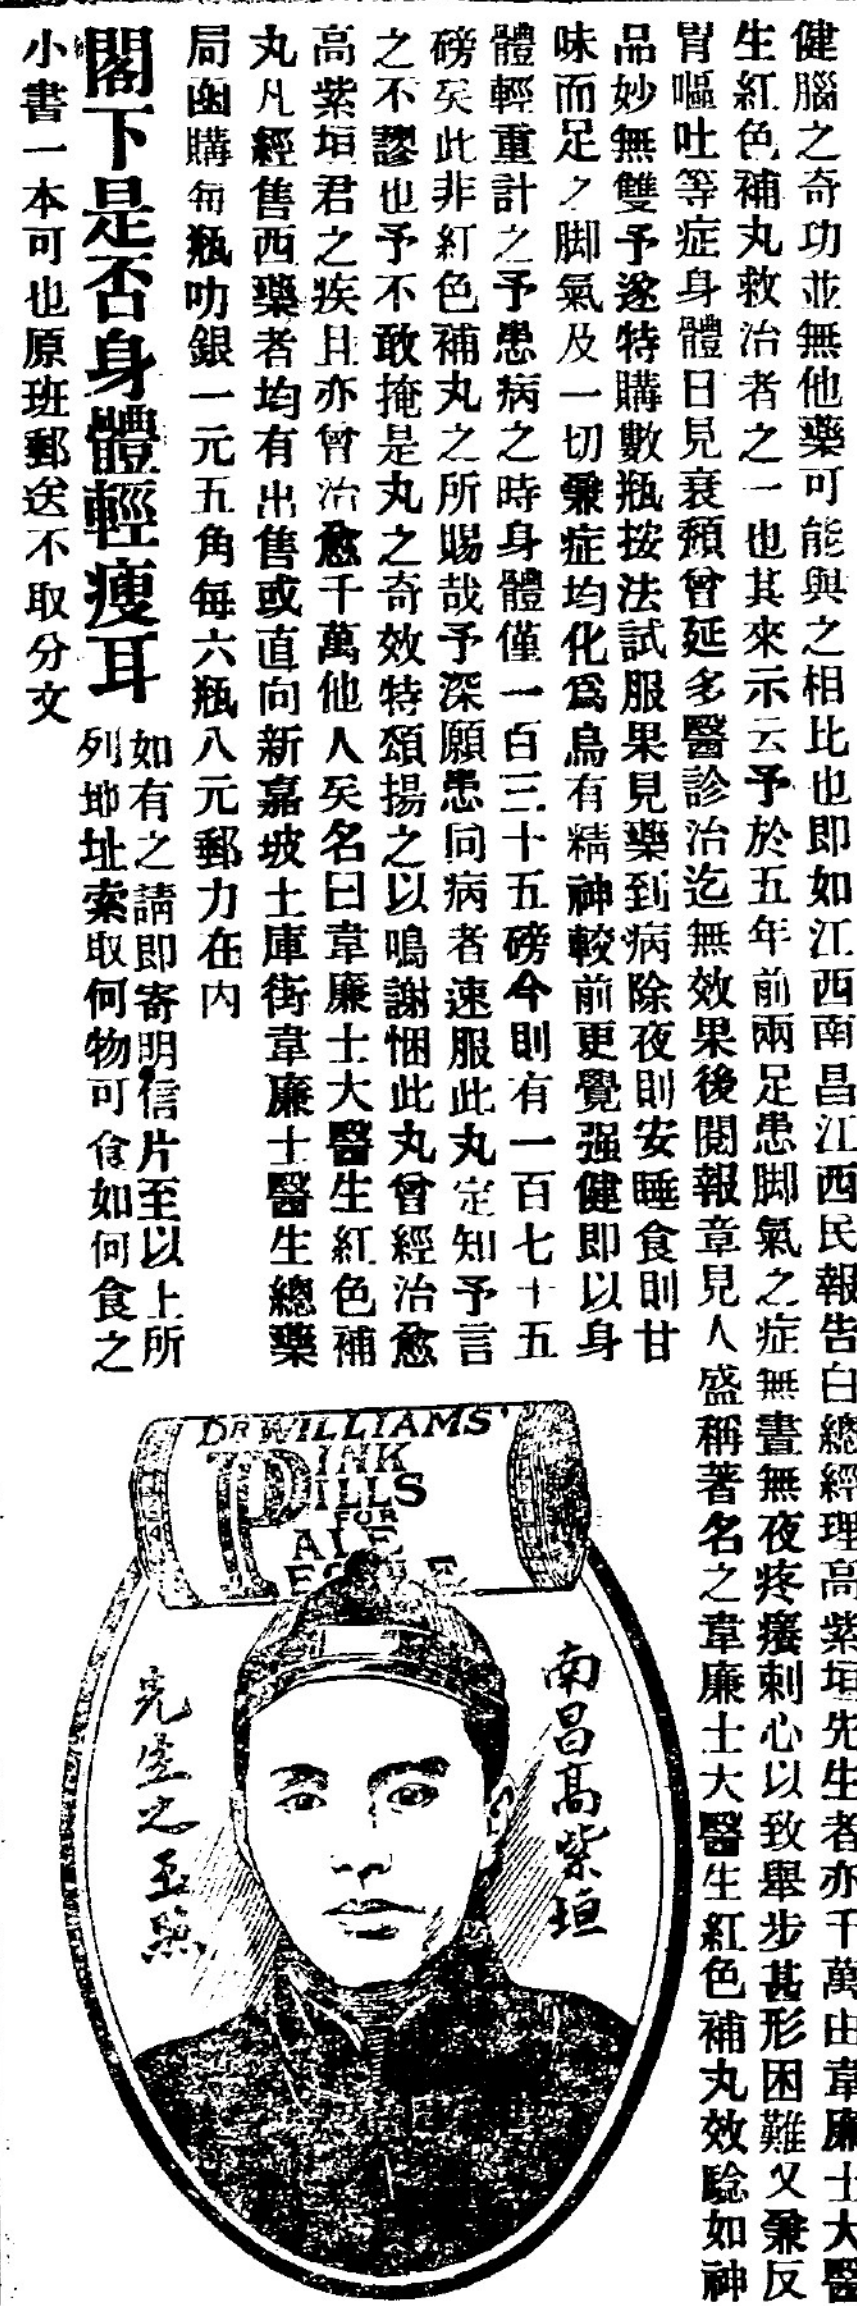 健腦之奇功並無他藥可能與之相比也即如江西南昌江西民報告白總經理高紫垣先生者亦千萬由韋廉士大醫
生紅色補丸救治者之一也其來示云予於五年前兩足患脚氣之症無晝無夜疼癢刺心以致舉步甚形困難又兼反
胃嘔吐等症身體日見衰頹曾延多醫診治迄無效果後閱報章見人盛稱著名之韋廉士大醫生紅色補丸效驗如神
品妙無雙予遂特購數瓶按法試服果見藥到病除夜則安睡食則甘
味而足之脚氣及一切兼症均化爲烏有精神較前更覺强健即以身
體輕重計之予患病之時身體僅一百三十五磅今則有一百七十五
磅矣此非紅色補丸之所賜哉予深願患同病者速服此丸定知予言
之不謬也予不敢掩是丸之奇效特頌揚之以鳴謝悃此丸曾經治愈
高紫垣君之疾且亦曾治愈千萬他人矣名曰韋廉士大醫生紅色補
丸凡經售西藥者均有出售或直向新嘉坡土庫街韋廉士醫生總藥
局函購每瓶叻銀一元五角每六瓶八元郵力在內
閣下是否身體輕瘦耳
如有之請即寄明信片至以上所
列地址索取何物可食如何食之
小書一本可也原班郵送不取分文
DR WILLIAMS'
PINK
PILLS
FOR
PALE
PEOPLE
南昌高紫垣
先生之玉照